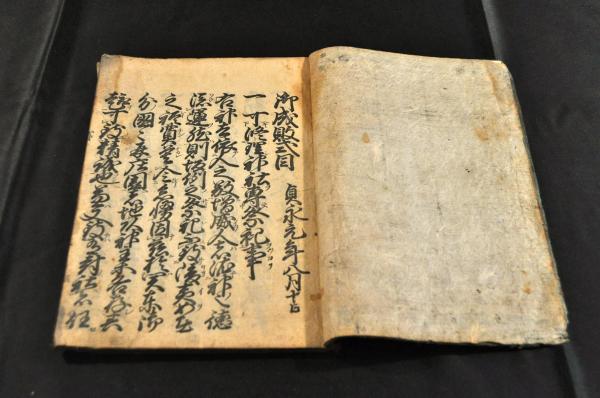 御成敗式目　貞永元年八月十日
一可修理神社専祭祀事
右神者依人之敬増威人者依神之徳
添運然則恒例之祭祀不致陵夷如在
之礼奠莫令怠慢因茲於関東御
分国々并庄園地頭神主等各存其
趣可致精誠也兼又於有封社者任